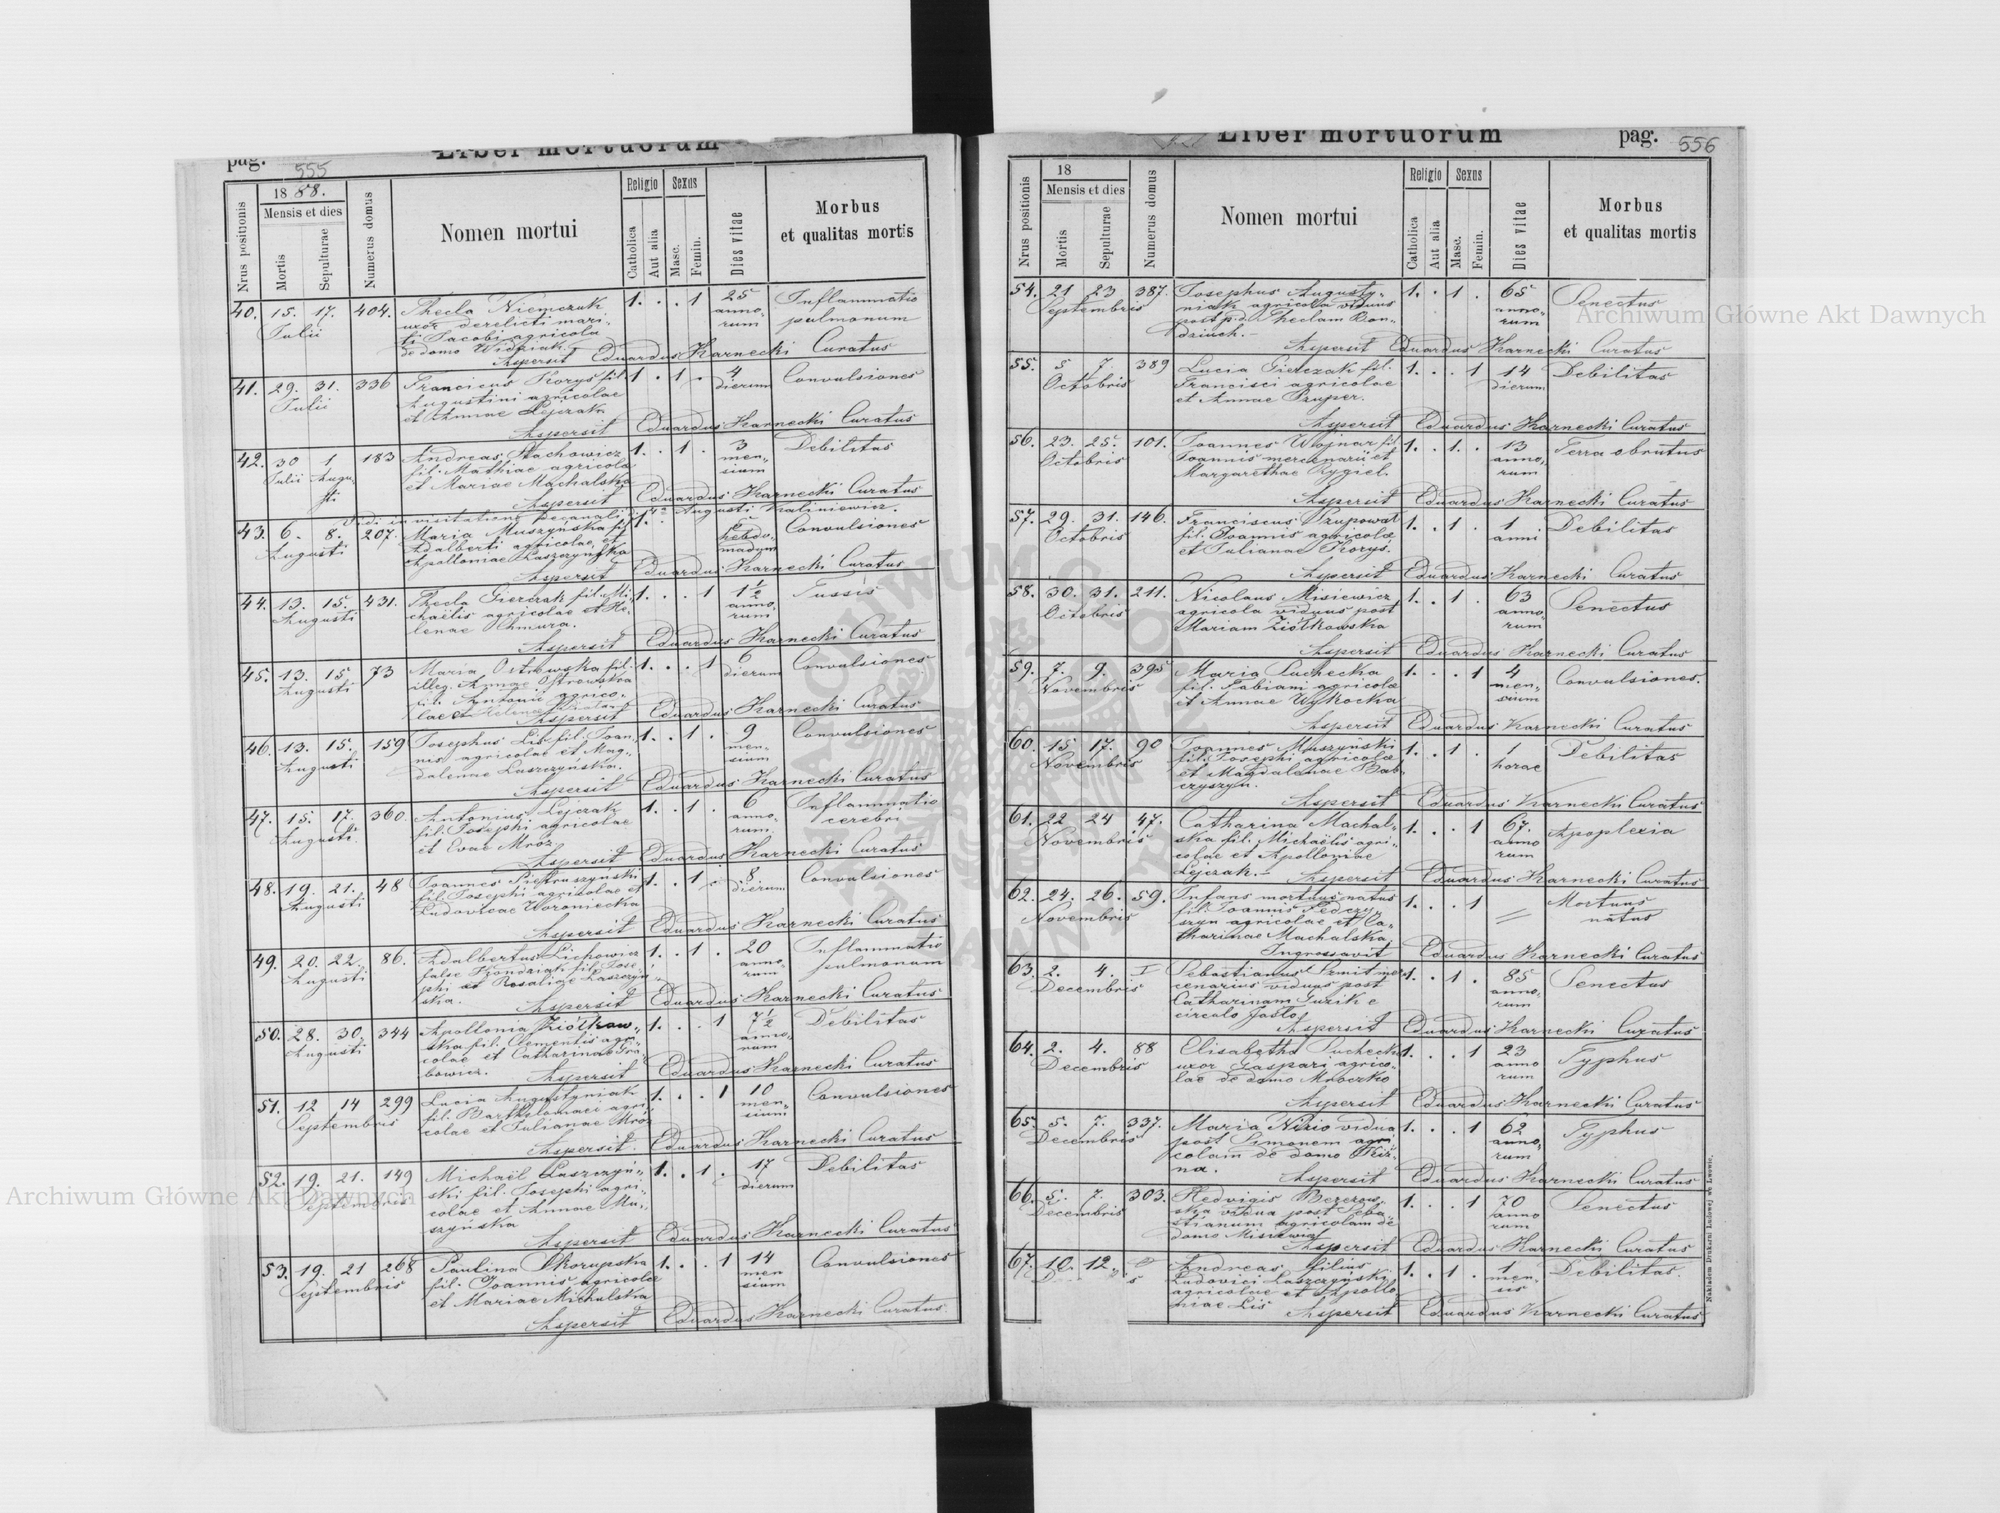 pag. 555
Liber mortuorum
Nrus positionis
1888.
Mensis et dies
Mortis
Sepulturae
Numerus domus
Nomen mortui
Religio
Catholica
Aut alia
Sexus
Masc.
Femin.
Dies vitae
Morbus
et qualitas mortis
40. 15. 17. 404. Thecla Niemczuk 1. . . 1 25 Inflammatio
Julii uxor derelicti mari- anno- pulmonum
ti Jacobi agricola rum
de domo
Aspersit Eduardus Karnecki Curatus
41. 29. 31. 336 Korys fil. 1 . 1 . 4 Convulsiones
Julii Augustini agricolae dierum
et Annae Lejczak
Aspersit Eduardus Karnecki Curatus
42. 30 1 183 Andreas Stachowicz 1. . 1 . 3 Debilitas
Julii Augu- fil. Mathiae agricola men-
sti et Mariae Machalska sium
Aspersit Eduardus Karnecki Curatus
Vidi in visitatione Decanali Augusti Kaliniewicz.
43. 6. 8. 207. Maria Muszyńska fil. 1. Convulsiones
Augusti Adalberti agricolae et hebdo-
Apolloniae Laszczyńska madum
Aspersit Eduardus Karnecki Curatus
44. 13. 15. 431. Thecla Gierczak fil. Mi- 1. . . 1 1½ Tussis
Augusti chaëlis agricolae et He- anno-
lenae Chmura. rum
Aspersit Eduardus Karnecki Curatus
45. 13. 15. 73 Maria Ostrowska fil. 1. . . 1 6 Convulsiones
Augusti illeg. Annae Ostrowska dierum
fil. Antonii agrico-
lae et Helenae
Aspersit Eduardus Karnecki Curatus
46. 13. 15. 159 Josephus Lis fil. Joan- 1. . 1 . 9 Convulsiones
Augusti nis agricolae et Mag- men-
dalenae Laszczyńska. sium
Aspersit Eduardus Karnecki Curatus
47. 15. 17. 360. Antonius Lejczak 1. . 1 . 6 Inflammatio
Augusti. fil. Josephi agricolae anno- cerebri
et Evae Mróz rum.
Aspersit Eduardus Karnecki Curatus
48. 19. 21. 48 Joannes Pietruszyński 1. . 1 . 8 Convulsiones
Augusti fil. Josephi agricolae et dierum
Ludovicae Woroniecka
Aspersit Eduardus Karnecki Curatus
49. 20. 22. 86. Adalbertus Lichowicz 1. . 1 . 20 Inflammatio
Augusti false fil. Jose- anno- pulmonum
phi et Rosaliae Laszczyń- rum
ska.
Aspersit Eduardus Karnecki Curatus
50. 28. 30. 344 Apollonia Ziółkow- 1. . . 1 7½ Debilitas
Augusti ska fil. Clementis agri- anno-
colae et Catharinae Gra- rum
bowicz. Aspersit Eduardus Karnecki Curatus
51. 12 14 299 Lucia Augustyniak 1. . . 1 10 Convulsiones
Septembris fil. Bartholomaei agri- men-
colae et Julianae Mróz sium
Aspersit. Eduardus Karnecki Curatus
52. 19. 21. 149 Michaël Laszczyń- 1. . 1 . 17 Debilitas
Septembris ski fil. Josephi agri- dierum
colae et Annae Mu-
szyńska
Aspersit Eduardus Karnecki Curatus
53. 19. 21 268 Paulina Skorupska 1. . . 1 14 Convulsiones
Septembris fil. Joannis agricolae men
et Mariae Michulska sium
Aspersit Eduardus Karnecki Curatus
Liber mortuorum
pag. 556
Nrus positionis
18
Mensis et dies
Mortis
Sepulturae
Numerus domus
Nomen mortui
Religio
Catholica
Aut alia
Sexus
Masc.
Femin.
Dies vitae
Morbus
et qualitas mortis
54. 21 23 387. Josephus Augusty- 1. . 1 . 65 Senectus
Septembris niak agricola viduus anno-
post p.d. Theclam Bon- rum
dziuch.
Aspersit Eduardus Karnecki Curatus
55. 5 7. 389 Lucia Gierczak fil. 1. . . 1 14 Debilitas
Octobris Francisci agricolae dierum
et Annae Szuper.
Aspersit Eduardus Karnecki Curatus
56. 23. 25. 101. Joannes Wojnar fil. 1. . 1. . 13 Terra obrutus
Octobris Joannis mercenarii et anno-
Margarethae Rygiel. rum
Aspersit Eduardus Karnecki Curatus
57. 29. 31. 146. Franciscus Szupowat 1. . 1 . 1 Debilitas
Octobris fil. Joannis agricolae anni
et Julianae Korys.
Aspersit Eduardus Karnecki Curatus
58. 30. 31. 211. Nicolaus Misiewicz 1. . 1 . 63 Senectus
Octobris agricola viduus post anno
Mariam Ziółkowska rum
Aspersit Eduardus Karnecki Curatus
59. 7. 9. 395 Maria Puchecka 1. . . 1 4 Convulsiones.
Novembris fil. Fabiani agricolae men-
et Annae Wykocka sium
Aspersit Eduardus Karnecki Curatus
60. 15 17. 90 Joannes Muszyński 1. . 1 . 1 Debilitas
Novembris fil. Josephi agricolae horae
et Magdalenae Bab-
czyszyn.
Aspersit Eduardus Karnecki Curatus
61. 22 24 47. Catharina Machal- 1. . . 1 67. Apoplexia
Novembris ska fil. Michaëlis agri- anno
colae et Apolloniae rum
Lejczak. Aspersit Eduardus Karnecki Curatus
62. 24. 26. 59. Infans mortuus natus 1. . . 1 Mortuus
Novembris fil. Joannis Fedczy- natus
szyn agricolae et Ca-
tharinae Machalska
Ingrossavit Eduardus Karnecki Curatus
63. 2. 4. I Sebastianus Szmit mer- 1. . 1 . 85 Senectus
Decembris cenarius viduus post anno-
Catharinam Guzik e rum
circulo Jasło
Aspersit Eduardus Karnecki Curatus
64. 2. 4. 88 Elisabetha Puchecka 1. . . 1 23 Typhus
Decembris uxor Gaspari agrico- anno
lae de domo Mroczko rum
Aspersit Eduardus Karnecki Curatus
65. 5. 7. 337. Maria vidua 1. . . 1 62 Typhus
Decembris post Simonem agri anno-
colam de domo rum
na.
Aspersit Eduardus Karnecki Curatus
66. 5. 7. 303. Hedvigis Berezow- 1. . . 1 70 Senectus
Decembris ska vidua post Seba- anno
stianum agricolam de rum
domo Misiewicz
Aspersit Eduardus Karnecki Curatus
67. 10. 12. Andreas filius 1. . 1 . 1 Debilitas.
D s Ludovici Laszczyński men-
agricolae et Apollo sis
niae Lis
Aspersit Eduardus Karnecki Curatus
Nakładem Drukarni Ludowej we Lwowie.
Archiwum Główne Akt Dawnych
Archiwum Główne Akt Dawnych